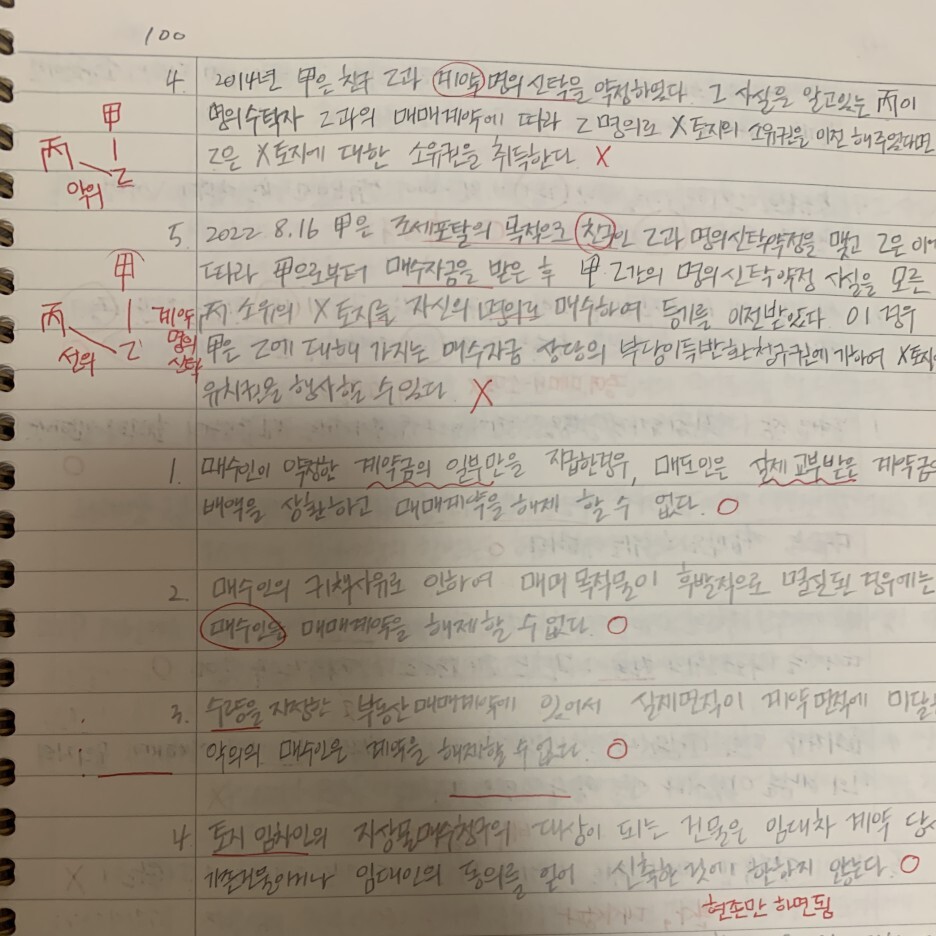 100
4. 2014년 甲은 친구 乙과 계약명의신탁을 약정하였다. 그 사실을 알고있는 丙이
명의수탁자 乙과의 매매계약에 따라 乙명의로 X토지의 소유권을 이전 해주었다면
乙은 X토지에 대한 소유권을 취득한다. X
甲
丙
乙
악의
5. 2022 8.16 甲은 조세포탈의 목적으로 친구인 乙과 명의신탁약정을 맺고 乙은 이에
따라 甲으로부터 매수자금을 받은 후 甲 乙간의 명의신탁약정 사실을 모른
丙 소유의 X토지를 자신의 명의로 매수하여 등기를 이전받았다. 이 경우
甲은 乙에 대해 가지는 매수자금 상당의 부당이득반환청구권에 기하여 X토지
유치권을 행사할 수 있다. X
甲
丙
乙
선의
계약
명의
신탁
1. 매수인이 약정한 계약금의 일부만을 지급한경우, 매도인은 실제 교부받은 계약금의
배액을 상환하고 매매계약을 해제 할 수 없다. O
2. 매수인의 귀책사유로 인하여 매매 목적물이 후발적으로 멸실된 경우에는
매수인은 매매계약을 해제할 수 없다. O
3. 수량을 지정한 부동산매매계약에 있어서 실제면적이 계약면적에 미달
악의의 매수인은 계약을 해제할 수 없다. O
4. 토지 임차인의 지상물매수청구의 대상이 되는 건물은 임대차 계약 당시
기존건물이거나 임대인의 동의를 얻어 신축한 것에 한하지 않는다. O
현존만 하면됨